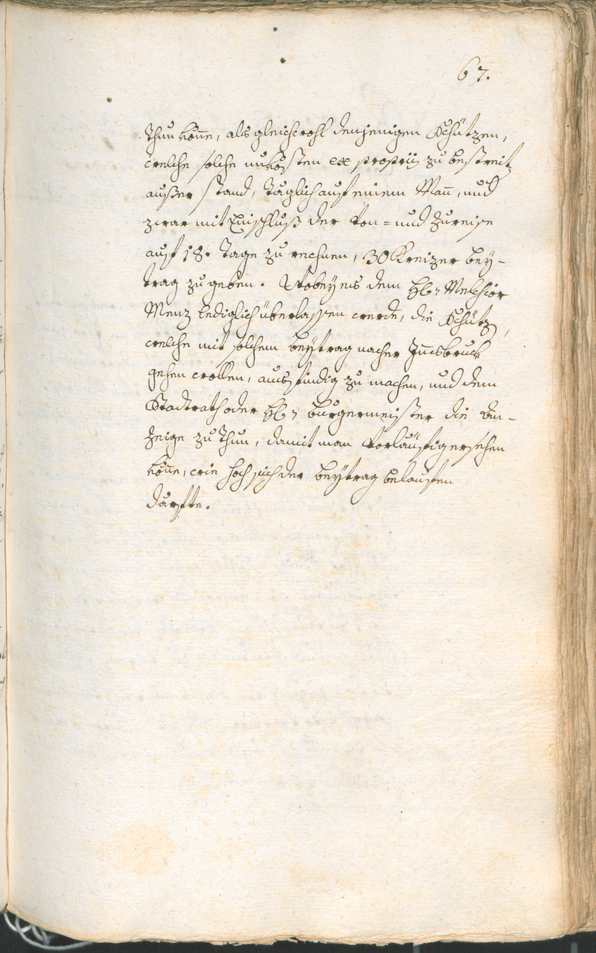 67.
thun könne, als gleichwohl denjenigen Schützen,
welche solche unkösten ex propriis zu bestreitt
ausser stand, täglich auf einem Mañ, und
zwar mit Einschluß der Von= und Zureise
auf 18. Tage zu rechnen, 30 Kreizer bey-
trag zu geben. Wobey es dem Hℓ: Melchior
Menz lediglich überlassen werde, die Schütz,
welche mit solchem beytrag nacher Jnnsbruck
gehen wollen, ausfündig zu machen, und dem
Stadtrath oder Hℓ: burgermeister die An-
zeige zu thun, damit man vorläufig ersehen
könne, wie hoch sich der beytrag belaufen
därfte.